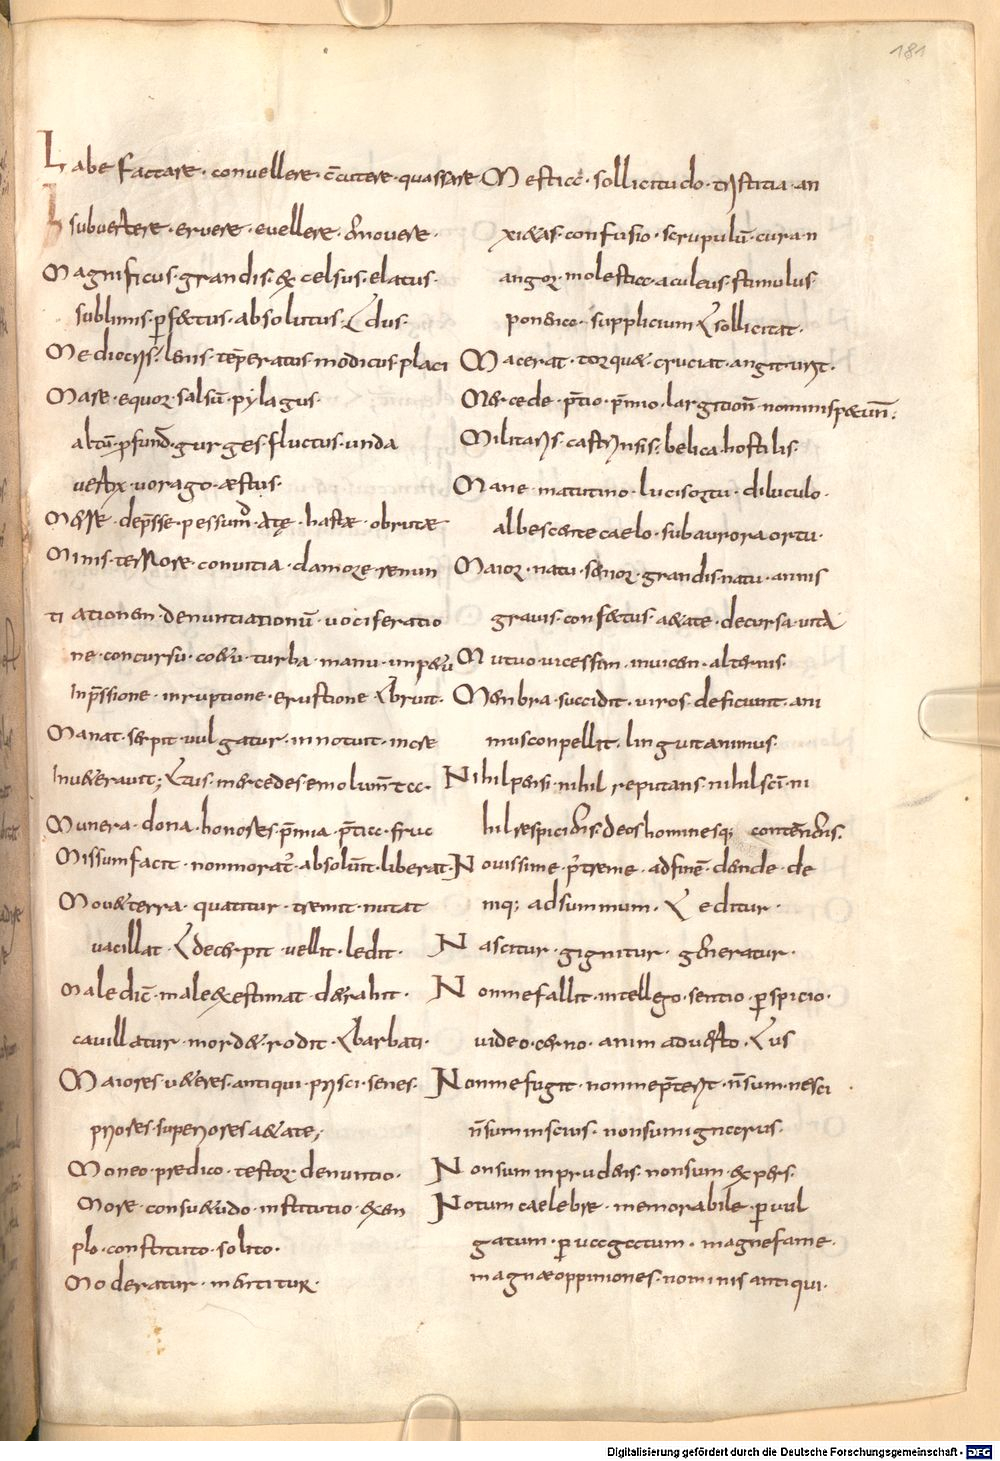 181
Labefactare · convellere · c̄cutere · quassare
subvertere · ervere · evellere · dimovere ·
Magnificus · grandis · & celsus · elatus ·
sublimis · p̱fectus · absolutus · Ł dus ·
Mediocris · lenis · tēperatus · modicus · placi
Mare · equor · salsū · pylagus ·
altū · profund · gurges · fluctus · unda
vertix · vorago · æstus ·
Mersse · dep̄sse · pessum · hastæ · obrutæ
Minis · terrore · convitia · clamore · renun
tiationem · denuntiationū · vociferatio
ne · concursu · coetu · turba · manu · impetu
Inp̄ssione · inruptione · eruptione Ł bruit ·
Manat · serpit · vulgatur · innotuit · incre
Inveteravit; Ł tus · mercedes · emolum̄tcc ·
Munera · dona · honores · p̄mia · p̄ticc · fruc
Missum facit · non morat̄ · absoluit · liberat ·
Mov& terra · quatitur · tremit · nutat
vacillat · Ł decerpit · vellit · ledit ·
Maledic̄ · male&estimat · d&rahit ·
cavillatur · mord& · rodit · Ł barbati ·
Maiores · v&eres · antiqui · prisci · senes ·
priores · superiores a&ate;
Moneo · predico · testor · denuntio ·
More · consu&udo · institutio · &em
plo · constituto · solito ·
Moderatur · mitur ·
Mesticc · sollicitudo · tristitia · an
xi&as · confusio · scrupulū · cura · n
angor · molesticc · aculeus · stimulus ·
supplicium Ł sollicitat ·
Macerat · torqu& · cruciat · angit · urit ·
Mercede · p̄tio · p̄mio · largition̄ · nominis
Militaris · castrensis · belica · hostilis ·
Mane · matutino · lucis ortu · diluculo ·
albescente caelo · sub aurora ortu ·
Maior · natu · senior · grandis · natu · annis
gravis · confectus · a&ate · decursa · vita
Mutuo · vicessim · invicem · alternis ·
Membra · succidit · viros · deficiunt · ani
mus conpellit · linguit animus ·
Nihil pensi · nihil reputans · nihil sc̄i · ni
hil respiciens · deos hominesq; contendens ·
Novissime · p̄treme · ad finē · deinde · de
inq; ad summum · Ł editur ·
Nascitur · gignitur · generatur ·
Non me fallit · intellego · sentio · perspicio ·
video · cerno · anim adverto · Ł us
Non me fugit · non me p̄terit · n̄ sum · nesci
n̄ sum inscius · non sum ignccrus ·
Non sum inprudens · non sum · &pers ·
Notum caelebre · memorabile · pervul
gatum · pervccgcctum · magne fame ·
magnæ oppiniones · nominis antiqui ·
Digitalisierung gefördert durch die Deutsche Forschungsgemeinschaft - DFG